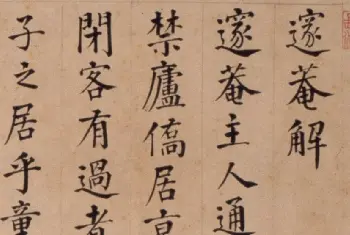 邃菴解
邃菴主人通
禁廬僑居京
閉客有過者
子之居乎童